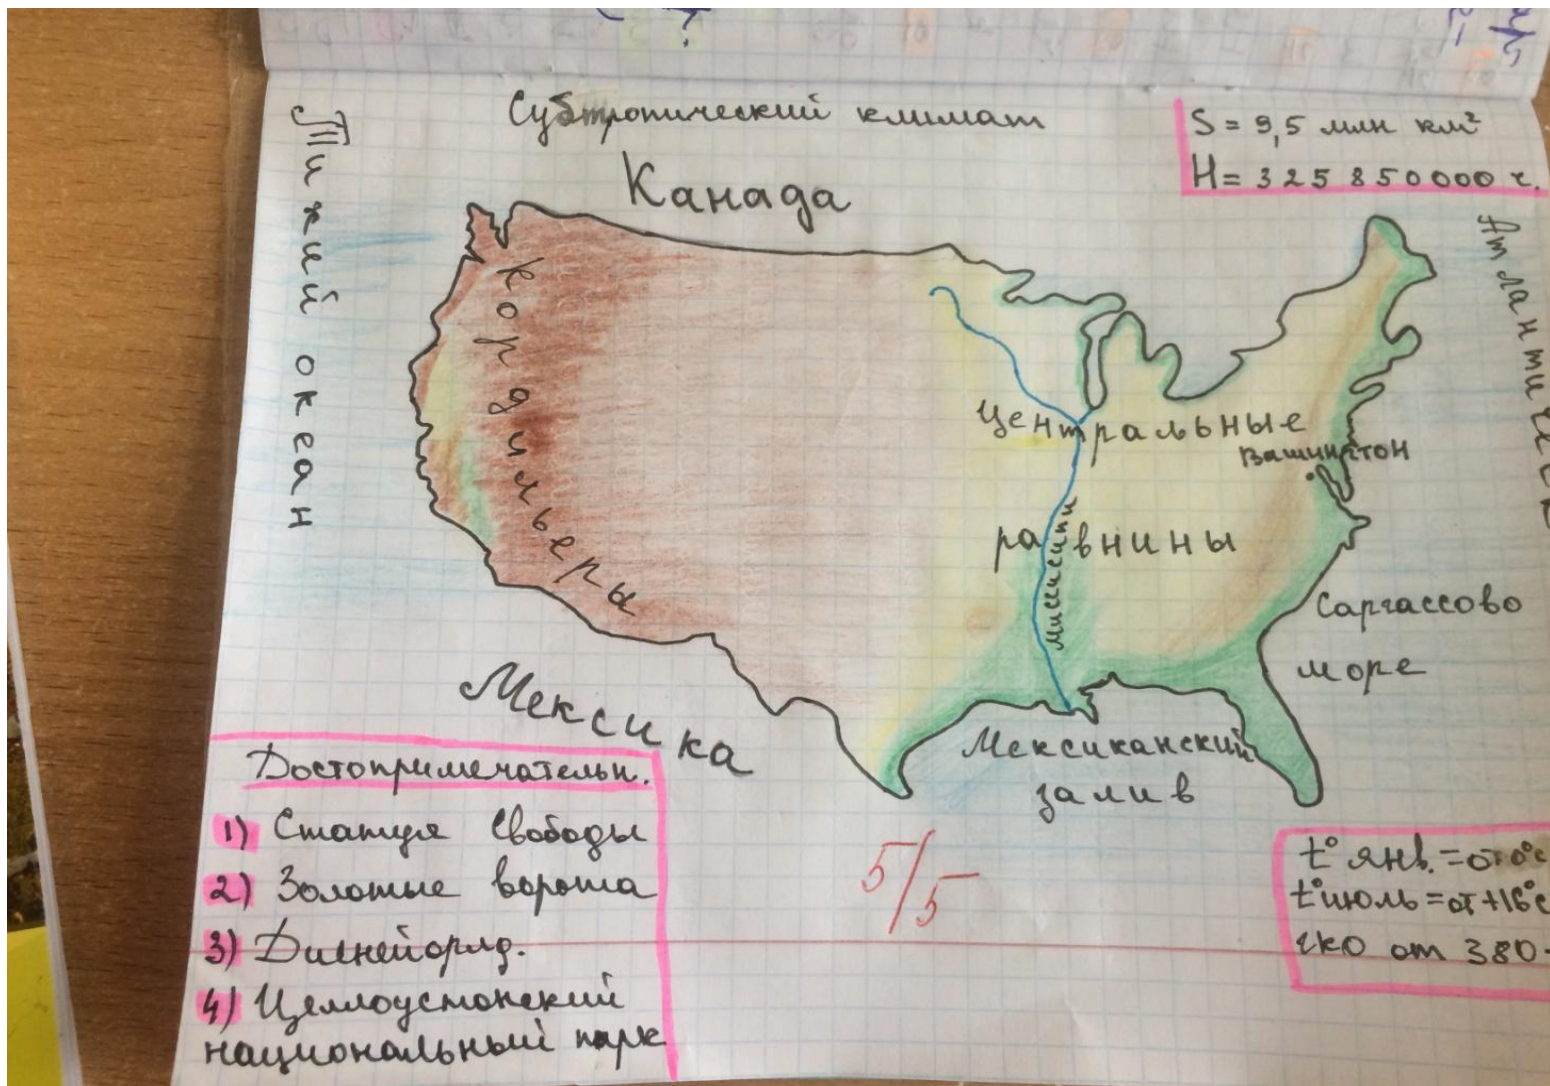 Субтропический климат
S = 9,5 млн км²
Н = 325 850000 ч.
Канада
Тихий океан
Атлантическ
Кордильеры
Центральные
Вашингтон
равнины
Миссисипи
Саргассово
море
Мексика
Мексиканский
залив
Достопримечательн.
1) Статуя Свободы
2) Золотые ворота
3) Диснейорлд.
4) Целлоустонский
национальный парк
5/5
t° янв.=от 0°с
t°июль=от+16°с
гко от 380-